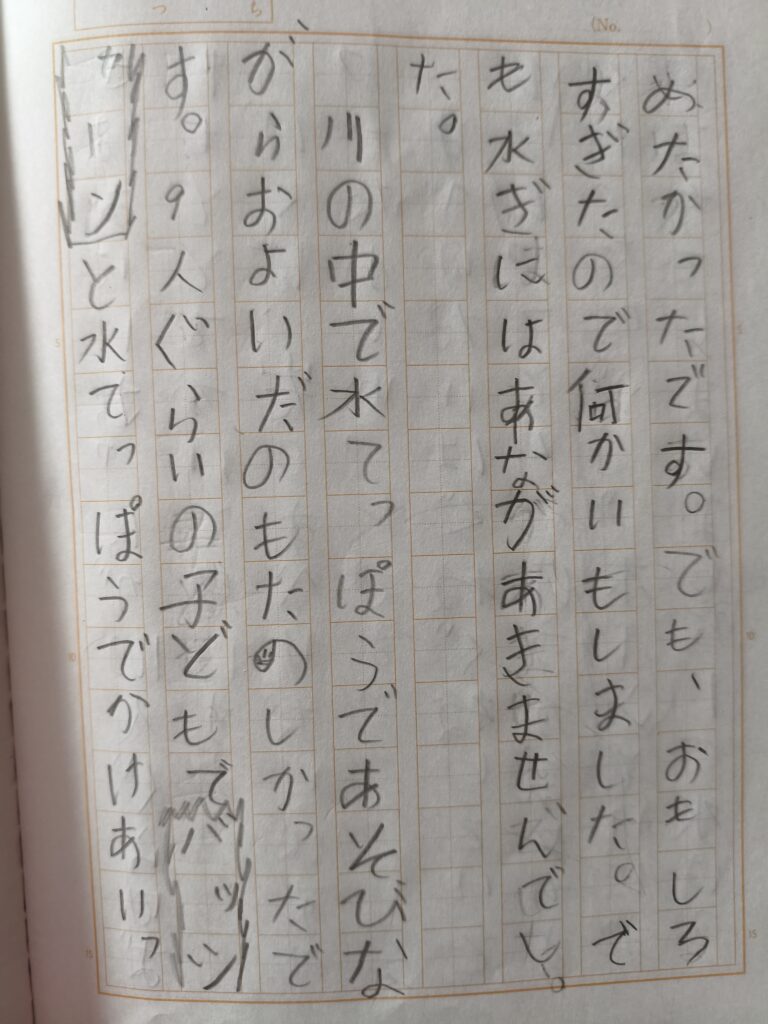 (No. )
めたかったです。でも、おもしろ
すぎたので何かいもしました。で
も水ぎにはあながあきませんでし。
た。
川の中で水てっぽうであそびな
がらおよいだのもたのしかったで
す。9人ぐらいの子どもでバッシ
ャーンと水てっぽうでかけあいっ。